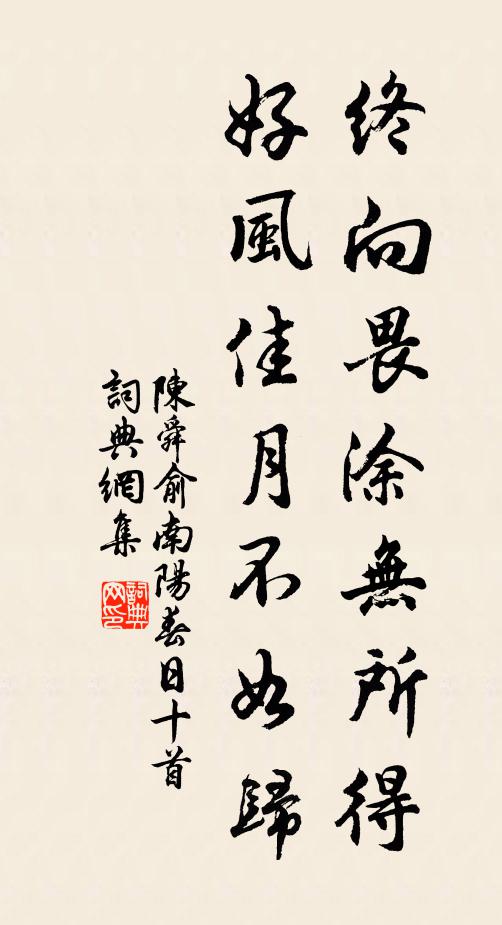 終向畏涂無所得
好風佳月不如歸
陳舜俞南陽春日十首
詞典網集
詞典网印